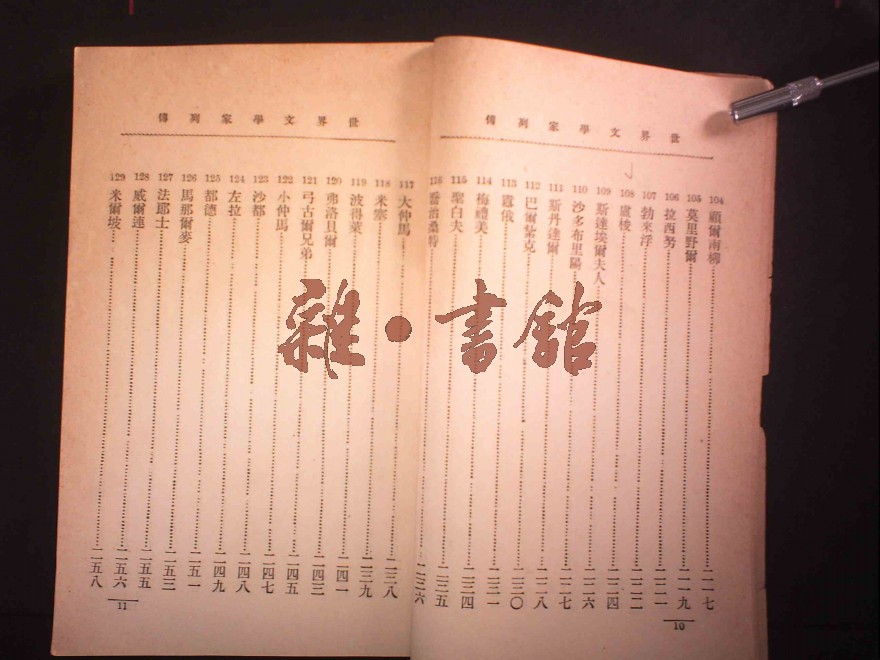 世界文學家列傳
104 顧爾……二一七
105 莫里野爾……二一九
106 拉西努……二二一
107 勃來浮……二二二
108 盧梭……二二四
109 斯達埃爾夫人……二二六
110 沙多布里陽……二二七
111 斯丹達爾……二二八
112 巴爾紮克……二三〇
113 囂俄……二三一
114 梅禮美……二三四
115 聖白夫……二三五
116 喬治桑特……二三六
10
世界文學家列傳
117 大仲馬……二三八
118 米塞……二三九
119 波得萊……二四一
120 弗洛貝爾……二四三
121 弓古爾兄弟……二四五
122 小仲馬……二四七
123 沙都……二四八
124 左拉……二四九
125 都德……二五一
126 馬那爾麥……二五三
127 法耶士……二五五
128 威爾連……二五六
129 米爾坡……二五八
11
雜·書館